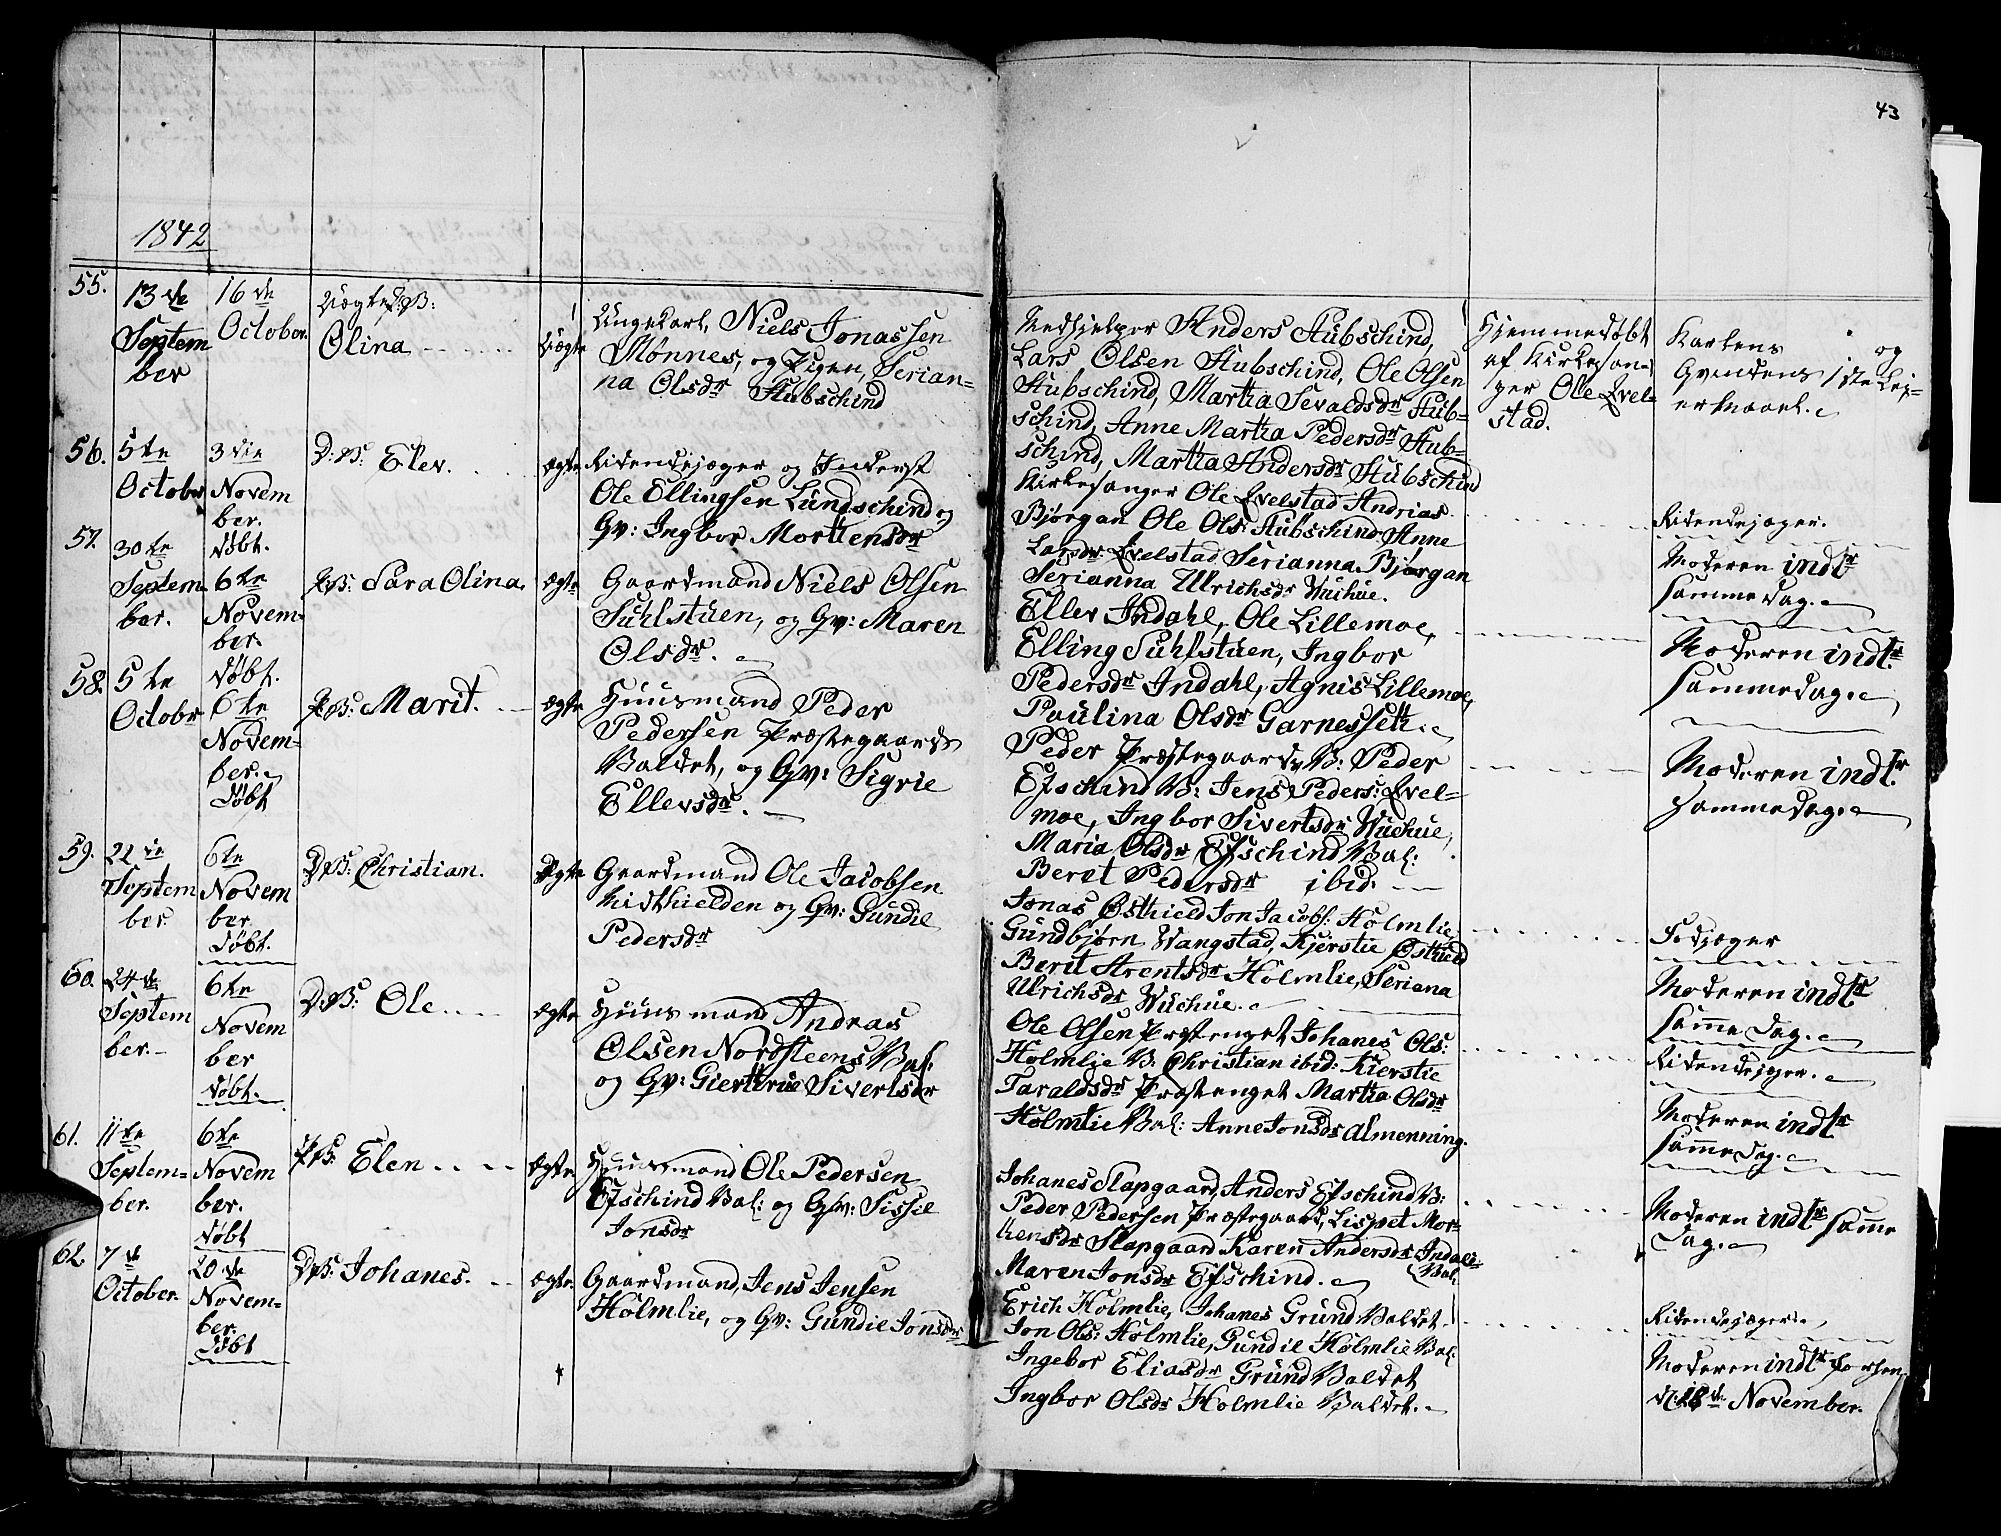 43
1842
55.
13de
Septem
ber
16de
October.
Uægte PB:
Olina
1
Uægte
Ungekarl, Niels Jonassen
Mønnes, og Pigen, Serian-
na Olsdr Stubschind
Medhjelper Anders Stubschind,
Lars Olsen Stubschind, Ole Olsen
Stubschind, Martha Sevaldsdr Stub-
schind, Anne Martha Pedersdr Stub-
schind, Martha Andersdr Stubschind
Hjemmedøbt
af Kirkesan-
ger Ole Qvel-
stad.
Karlens og
Qvindens 1ste Lei-
ermaal.
56.
5te
October
3die
Novem
ber.
Døbt.
D:B: Elev.
Ægte
Ridendejæger og Inderst
Ole Ellingsen Lundschind og
Gv: Ingbor Mortensdr
Kirkesanger Ole Qvelstad Andrias
Bjørgan Ole Ols: Stubschind Anne
Larsdr Qvelstad Serianna Bjørgan
Serianna Ulrichsdr Wuchue.
Ridendejæger.
Moderen indl:
samme Dag.
57.
30te
Septem
ber.
6te
Novem-
ber.
Døbt.
PB: Sara Olina.
Ægte
Gaardmand Niels Olsen
Suhlstuen, og Gv: Maren
Olsdr.
Ellev Indahl, Ole Lillemoe,
Elling Suhlstuen, Ingbor
Pedersdr Indahl, Agnis Lillemoe,
Paulina Olsdr Garnesseth.
Moderen indl:
samme Dag.
58.
5te
Octobr
6te
Novem-
ber.
Døbt
PB: Marit.
Ægte
Huusmand Peder
Pedersen Præstegaards
Valdet, og Gv: Sigrie
Ellevsdr.
Peder Præstegaards V: Peder
Efschind V: Jens Peders: Qvel-
moe, Ingbor Sivertsdr Wuchue,
Maria Olsdr Efschind Val:
Beret Pedersdr ibid.
Moderen indl:
samme Dag.
59.
22de
Septem
ber.
6te
Novem
ber.
Døbt.
DB: Christian.
Ægte
Gaardmand Ole Jacobsen
Midthielden og Gv: Gundil
Pedersdr
Jonas Østhield Jon Jacobs: Holmlie
Gundbjørn Wangstad, Kjerstie Østhield
Berit Arentsdr Holmlie, Seriana
Ulrichsdr Wuchue.
Fodjæger
Moderen indl:
samme Dag.
60.
24de
Septem
ber.
6te
Novem
ber
Døbt.
DB: Ole
Ægte
Huusmand Andras
Olsen Nordsteens Val:
og Gv: Gierthrue Sivertsdr
Ole Olsen Præstenget Johanes Ols:
Holmlie V: Christian ibid: Kierstie
Taraldsdr Præstenget Martha Olsdr
Holmlie Val: Anne Jonsdr Almenning.
Ridendejæger.
Moderen indl:
samme Dag.
61.
11te
Septem-
ber.
6te
Novem
ber.
Døbt
PB: Elen
Ægte
Huusmand Ole Pedersen
Efschind Val: og Gv: Sissil
Jonsdr
Johanes Slapgaard, Anders Efschind V:
Peder Pedersen Præstegaard, Lispet Mor-
tensdr Slapgaard Karen Andersdr Indals-
Val:
Maren Jonsdr Efschind.
Moderen indl: samme
Dag.
62.
7de
October.
20de
Novem-
ber.
Døbt
DB: Johanes.
Ægte
Gaardmand, Jens Jensen
Holmlie, og Gv: Gundie Jonsdr
Erich Holmlie, Johanes Grund Valdet
Jon Ols: Holmlie, Gundil Holmlie Val:
Ingebor Eliasdr Grund Valdet
Ingbor Olsdr Holmlie Valdet.
Ridendejæger.
Moderen indl:
November.